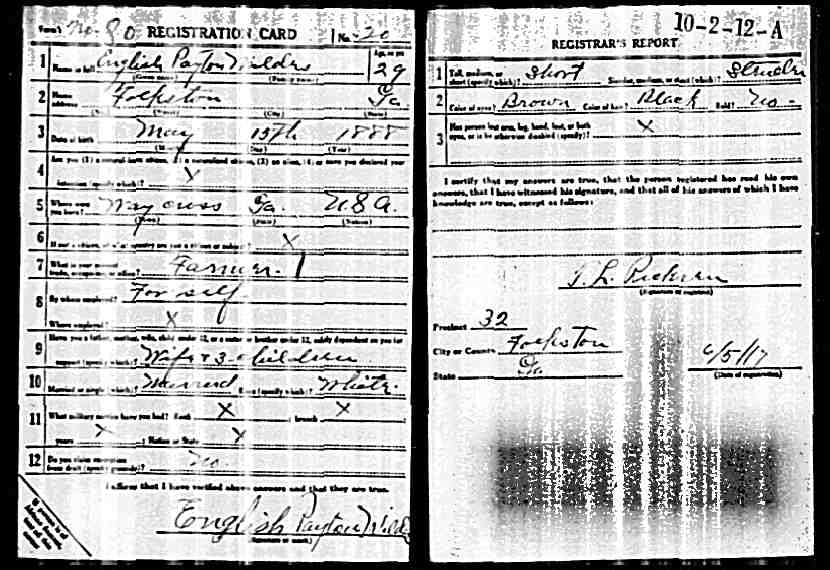 Form 1 No. 80 REGISTRATION CARD No. 20
1 Name in full English Payton Wildes Age, in yrs 29
(Given name) (Family name)
2 Home address Folkston Ga.
(No.) (Street) (City) (State)
3 Date of birth May 15th 1888
(Month) (Day) (Year)
4 Are you (1) a natural-born citizen, (2) a naturalized citizen, (3) an alien, (4) or have you declared your
intention (specify which)? X
5 Where were you born? Waycross Ga. U.S.A.
(Town) (State) (Nation)
6 If not a citizen, of what country are you a citizen or subject? X
7 What is your present trade, occupation, or office? Farmer. 1
8 By whom employed? For self
Where employed? X
9 Have you a father, mother, wife, child under 12, or a sister or brother under 12, solely dependent on you for
support (specify which)? Wife & 3 children
10 Married or single (which)? Married Race (specify which)? White.
11 What military service have you had? Rank X ; branch X
years X ; Nation or State X
12 Do you claim exemption from draft (specify grounds)? No.
I affirm that I have verified above answers and that they are true.
English Payton Wildes
(Signature or mark)
10-2-12-A
REGISTRAR'S REPORT
1 Tall, medium, or short (specify which)? Short Slender, medium, or stout (which)? Slender
2 Color of eyes? Brown Color of hair? Black Bald? No-
3 Has person lost arm, leg, hand, foot, or both eyes, or is he otherwise disabled (specify)? X
I certify that my answers are true, that the person registered has read his own
answers, that I have witnessed his signature, and that all of his answers of which I have
knowledge are true, except as follows:
(Signature of registrar)
Precinct 32
City or County Folkston
State Ga
6/5/17
(Date of registration)